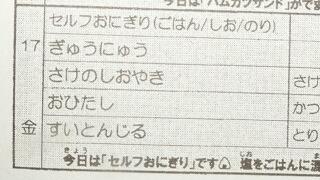 今日は「ハムカツサンド」がで
セルフおにぎり(ごはん/しお/のり)
17
ぎゅうにゅう
さけのしおやき
さけ
おひたし
かつ
金
すいとんじる
とり
きょう
しお
今日は「セルフおにぎり」です 塩をごはんに